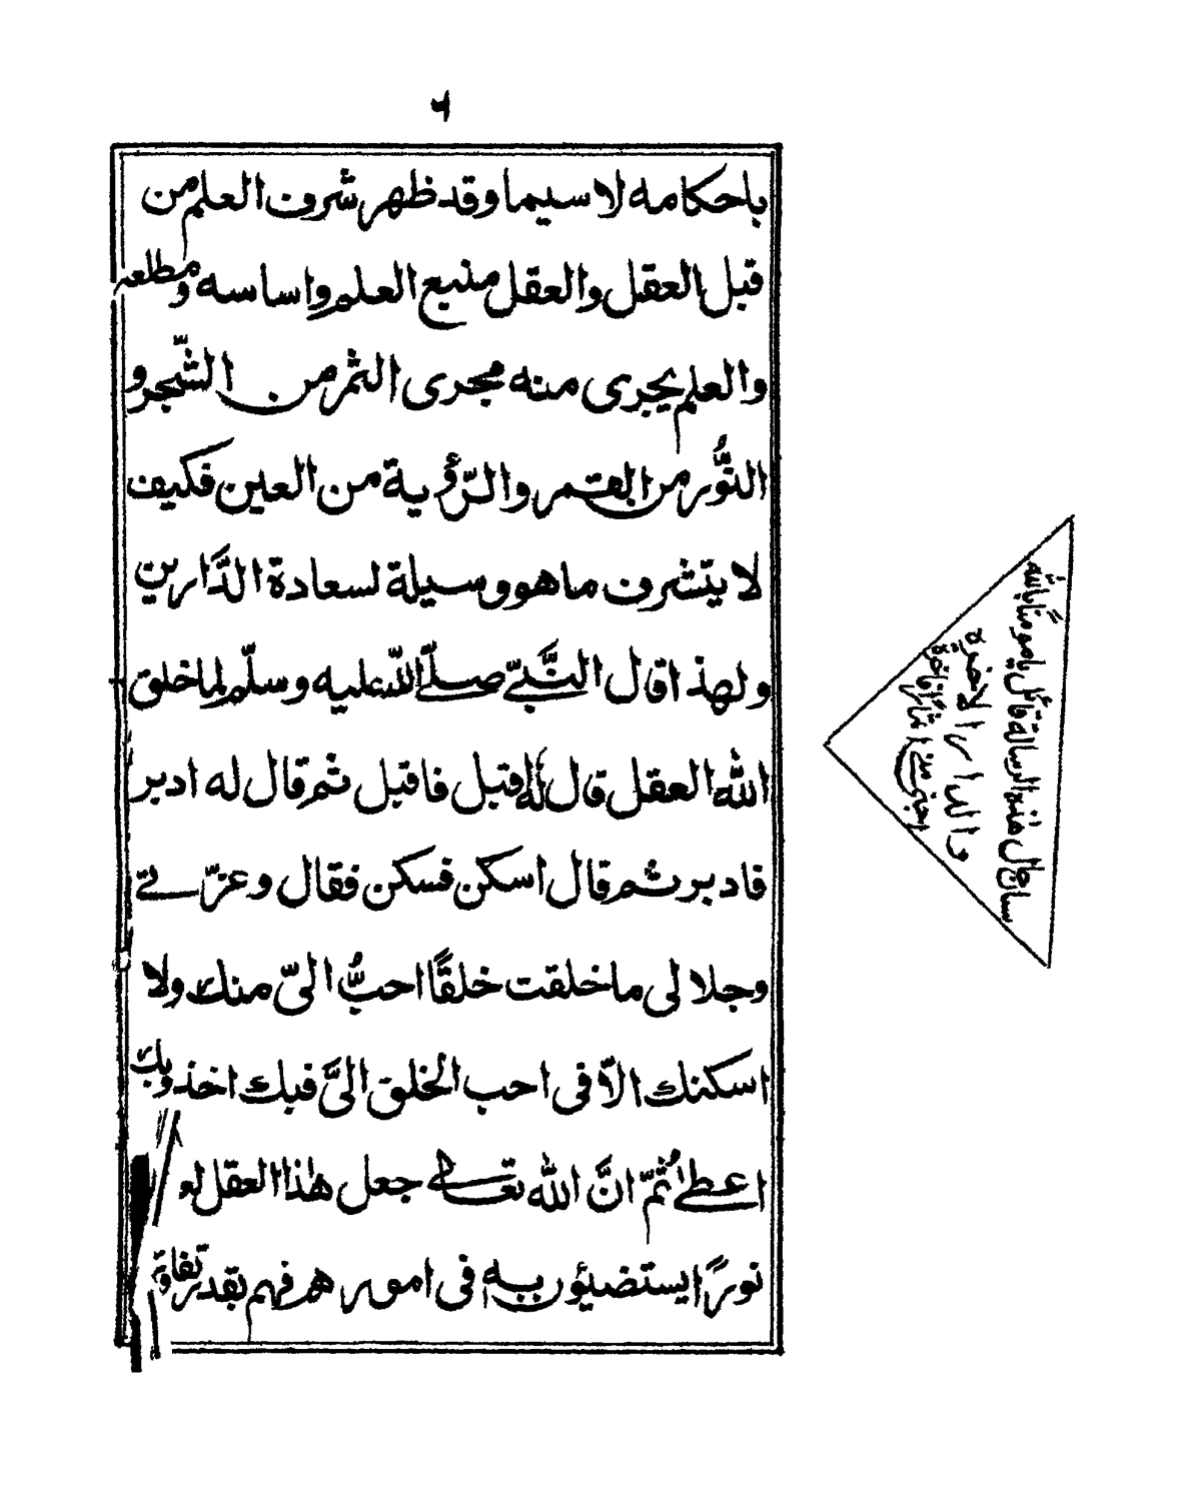 ٦
باحكامه لا سيما وقد ظهر شرف العلم من
قبل العقل والعقل منبع العلم واساسه ومطلعه
والعلم يجرى منه مجرى الثمر من الشّجر و
النُّور من القمر والرّؤية من العين فكيف
لا يتشرف ما هو وسيلة لسعادة الدَّارين
ولهذا قال النَّبيّ صلّے اللّٰه عليه وسلّم لما خلق
اللّٰه العقل قال له اقبل فاقبل ثم قال له ادبر
فادبر ثم قال اسكن فسكن فقال وعزّتے
وجلالى ما خلقت خلقًا احبُّ الىّ منك ولا
اسكنك الاّ فى احب الخلق الىَّ فبك اخذ وبك
اعطے ثمّ انَّ اللّٰه تعالے جعل هٰذا العقل لهٗ
نورًا يستضيؤن به فى امورهم فهم بقدر تفاوته
هٰذه الرسالة قائل
والدار الاخرة